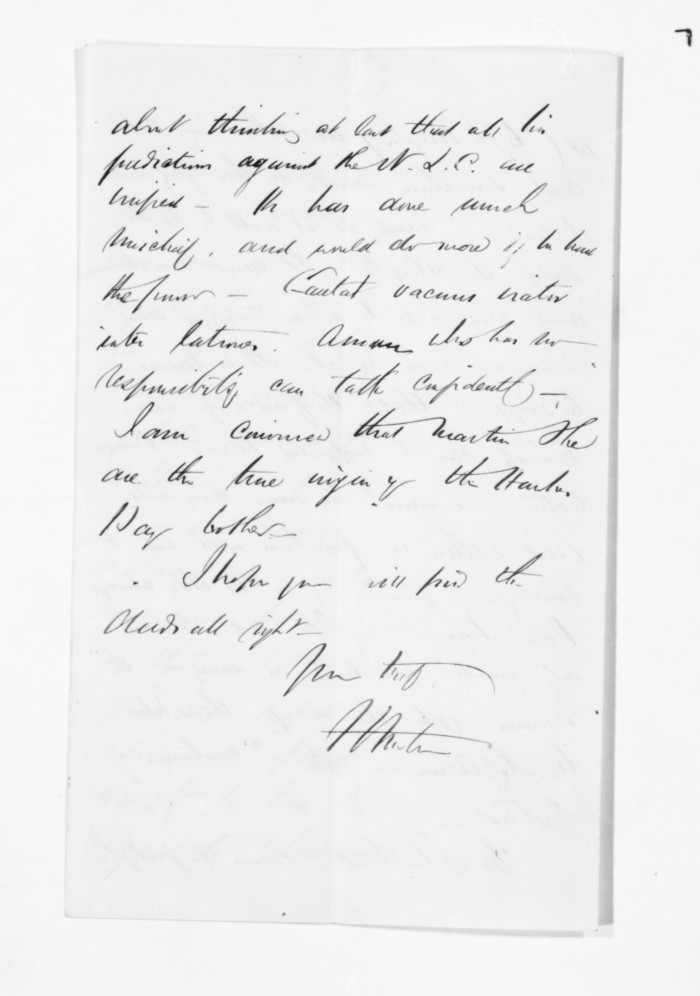 about thinking at last that all his
predictions against the N. L. C. are
verified – He has done much
mischief, and would do more if he had
the power – Cantat vacuus viator
inter latrones. A man who has no
responsibility can talk confidently –
I am convinced that Martin & he
are the true origin of the Hawkes
Bay bother –
I hope you will find the
deeds all right –
Yrs truly